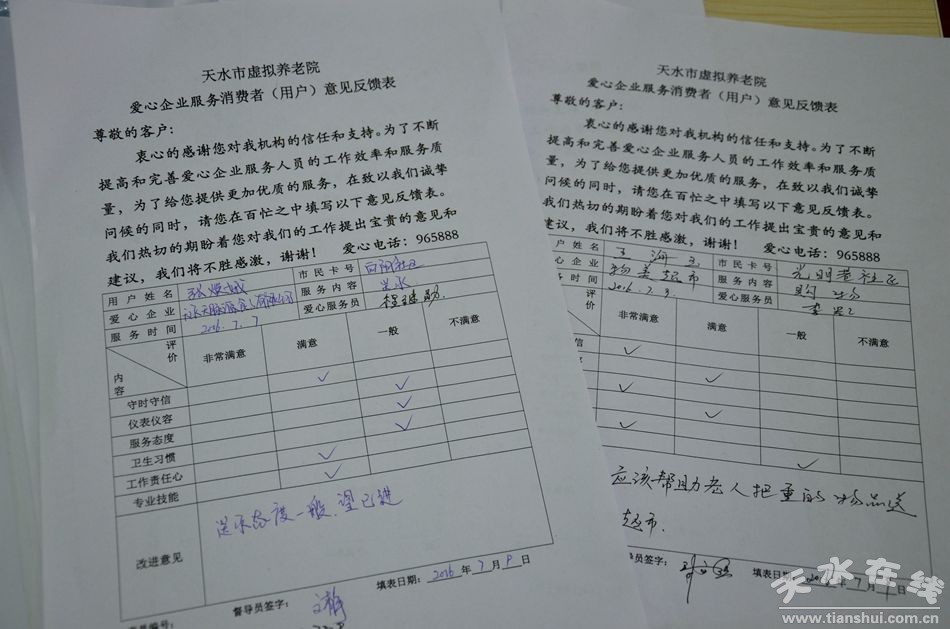 天水市虚拟养老院
爱心企业服务消费者（用户）意见反馈表
尊敬的客户：
衷心的感谢您对我机构的信任和支持。为了不断
提高和完善爱心企业服务人员的工作效率和服务质
量，为了给您提供更加优质的服务，在致以我们诚挚
问候的同时，请您在百忙之中填写以下意见反馈表。
我们热切的期盼着您对我们的工作提出宝贵的意见和
建议，我们将不胜感激，谢谢！ 爱心电话：965888
用户姓名 市民卡号
爱心企业 服务内容 送水
服务时间 2016.7.7 爱心服务员
评价 内容 非常满意 满意 一般 不满意
守时守信 ✓
仪表仪容 ✓
服务态度 ✓
卫生习惯 ✓
工作责任心 ✓
专业技能 ✓
改进意见 送水态度一般，望已进
填表日期：2016年7月9日
督导员签字：
天水市虚拟养老院
爱心企业服务消费者（用户）意见反馈表
尊敬的客户：
衷心的感谢您对我机构的信任和支持。为了不断
提高和完善爱心企业服务人员的工作效率和服务质
量，为了给您提供更加优质的服务，在致以我们诚挚
问候的同时，请您在百忙之中填写以下意见反馈表。
我们热切的期盼着您对我们的工作提出宝贵的意见和
建议，我们将不胜感激，谢谢！ 爱心电话：965888
户姓名 王海玉 市民卡号
心企业 物美超市 服务内容 购物
时间 2016.7.9 爱心服务员
评 非常满意 满意 一般 不满意
信 ✓
✓
✓
✓
✓
✓
应该帮助老人把重的物品送
超市.
员签字： 填表日期：
天水在线
www.tianshui.com.cn